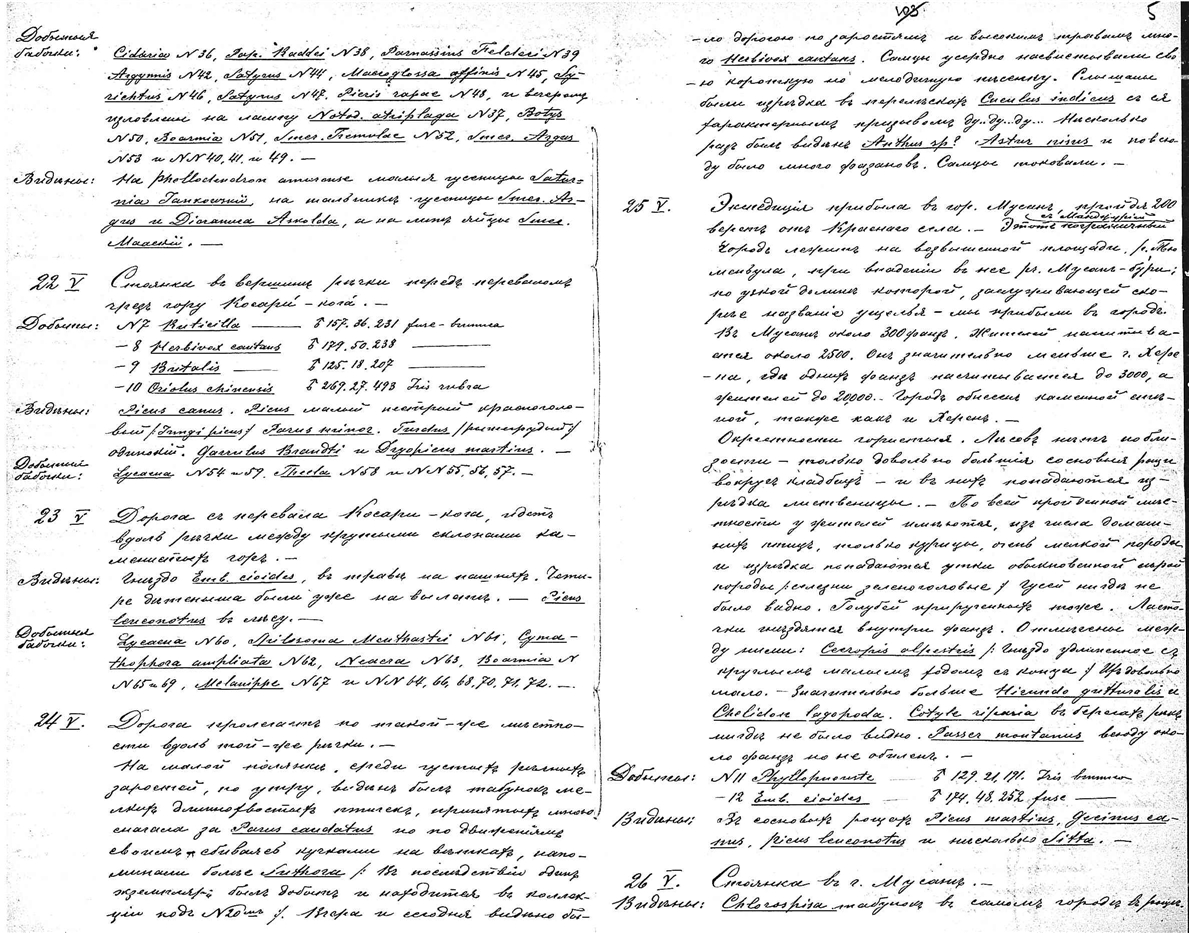 Добытыя бабочки: Cidaria N36, Pap. Raddei N38, Parnassius Felderi N39
Argynnis N42, Satyrus N44, Macroglossa affinis N45, Sy-
richtus N46, Satyrus N47. Pieris rapae N48, и вечеромъ
изловлены на лампу Notod. atriplaga N37, Botys
N50, Boarmia N51, Smer. Tremulae N52, Smer. Argus
N53 и NN40, 41, и 49. —
Видѣны: На phellodendron amurense малыя гусеницы Satur-
nia Jankowskii, на тальникѣ гусеницы Smer. Ar-
gus и Dicranura Arnolda, а на липѣ яйцы Smer.
Maackii. —
22 V Стоянка въ вершинѣ рѣчки передъ переваломъ
чрезъ гору Косари-кога. —
Добыты: N7 Ruticilla —— ♂ 157. 36. 231 fusc-brunnea
– 8 Herbivox cantans ♂ 179. 50. 238 ——
– 9 Butalis —— ♂ 125. 18. 207
– 10 Oriolus chinensis ♂ 269. 27. 493 Iris rubra
Видѣны: Picus canus. Picus малый пестрый красноголо-
вый /Iungipicus/ Parus minor. Turdus /рыжегрудый/
одинокій. Garrulus Brandti и Dryopicus martius. —
Добытыя бабочки: Lycaena N54 и 59. Thecla N58 и NN55, 56, 57. —
23 V Дорога съ перевала Косари-кога, идетъ
вдоль рѣчки между крутыми склонами ка-
менистыхъ горъ. —
Видѣны: Гнѣздо Emb. cioides, въ травѣ на пашняхъ. Четы-
ре дѣтеныша были уже на вылетѣ. — Picus
leuconotus въ лѣсу. —
Добытыя бабочки: Lycaena N60, Spilosoma Menthastri N61, Cyma-
thophora ampliata N62, Neaera N63, Boarmia N
N65 и 69, Melanippe N67 и NN64, 66, 68, 70, 71, 72. —
24 V. Дорога пролегаетъ по такой-же мѣстно-
сти вдоль той-же рѣчки. —
На малой полянкѣ, среди густыхъ рѣчныхъ
зарослей, по утру, видѣнъ былъ табунокъ ме-
лкихъ длиннохвостыхъ птичекъ, принятыхъ мною
сначала за Parus caudatus но по движеніямъ
своимъ, сбиваясь кучками на вѣткахъ, напо-
минали болѣе Suthora /: Въ послѣдствіи одинъ
экземпляръ былъ добытъ и находится въ коллек-
ціи подъ N20мъ /. Вчера и сегодня видѣно бы-
103. 5
-ло дорогою по зарослямъ и высокимъ травамъ мно-
го Herbivox cantans. Самцы усердно насвистывали сво-
-ю короткую но мелодичную пѣсенку. Слышаны
были изрѣдка въ перелѣскахъ Cuculus indicus съ ея
характернымъ призывомъ ду..ду..ду... Нѣсколько
разъ былъ видѣнъ Anthus sp? Astur nisus и повсю-
ду было много фазановъ. Самцы токовали. —
25 V. Экспедиція прибыла въ гор. Мусанъ, пройдя 200
верстъ отъ Краснаго села. — Этотъ пограничный
съ Манджуріей
городъ лежитъ на возвышенной площади, р. Тю-
менъула, при впаденіи въ нее рч. Мусанъ-бури;
по узкой долинѣ которой, заслуживающей ско-
рѣе названіе ущелья – мы прибыли въ городъ.
Въ Мусанѣ около 300 фанзъ. Жителей насчитыва-
ется около 2500. Онъ значительно меньше г. Хере-
на, гдѣ однихъ фанзъ насчитывается до 3000, а
жителей до 20000. – Городъ обнесенъ каменной стѣ-
ной, также какъ и Херенъ. —
Окрестности гористыя. Лѣсовъ нѣтъ по бли-
зости – только довольно большія сосновыя рощи
вокругъ кладбищъ – и въ нихъ попадаются из-
рѣдка лиственницы. — По всей пройденной мѣс-
тности у жителей имѣются, изъ числа домаш-
нихъ птицъ, только курицы, очень мелкой породы
и изрѣдка попадаются утки обыкновенной сѣрой
породы /селезни зеленоголовые/ Гусей нигдѣ не
было видно. Голубей прирученныхъ тоже. Ласто-
чки гнѣздятся внутри фанзъ. Отмѣчены меж-
ду ними: Cecropis alpestris /: гнѣздо удлиненное съ
круглымъ малымъ ходомъ съ конца / Ихъ довольно
мало. – Значительно больше Hirundo gutturalis и
Chelidon lagopoda. Cotyle riparia въ берегахъ рѣкъ
нигдѣ не было видно. Passer montanus всюду око-
ло фанзъ но не обиленъ. —
Добыты: N11 Phyllopneuste —— ♂ 129. 21, 191. Iris brunnea
– 12 Emb. cioides —— ♂ 174. 48. 252. fusc ——
Видѣны: Въ сосновыхъ рощахъ Picus martius, Gecinus ca-
nus, picus leuconotus и нѣсколько Sitta. —
26 V. Стоянка въ г. Мусанѣ. —
Видѣны: Chlorospiza табунокъ въ самомъ городѣ въ рощѣ.